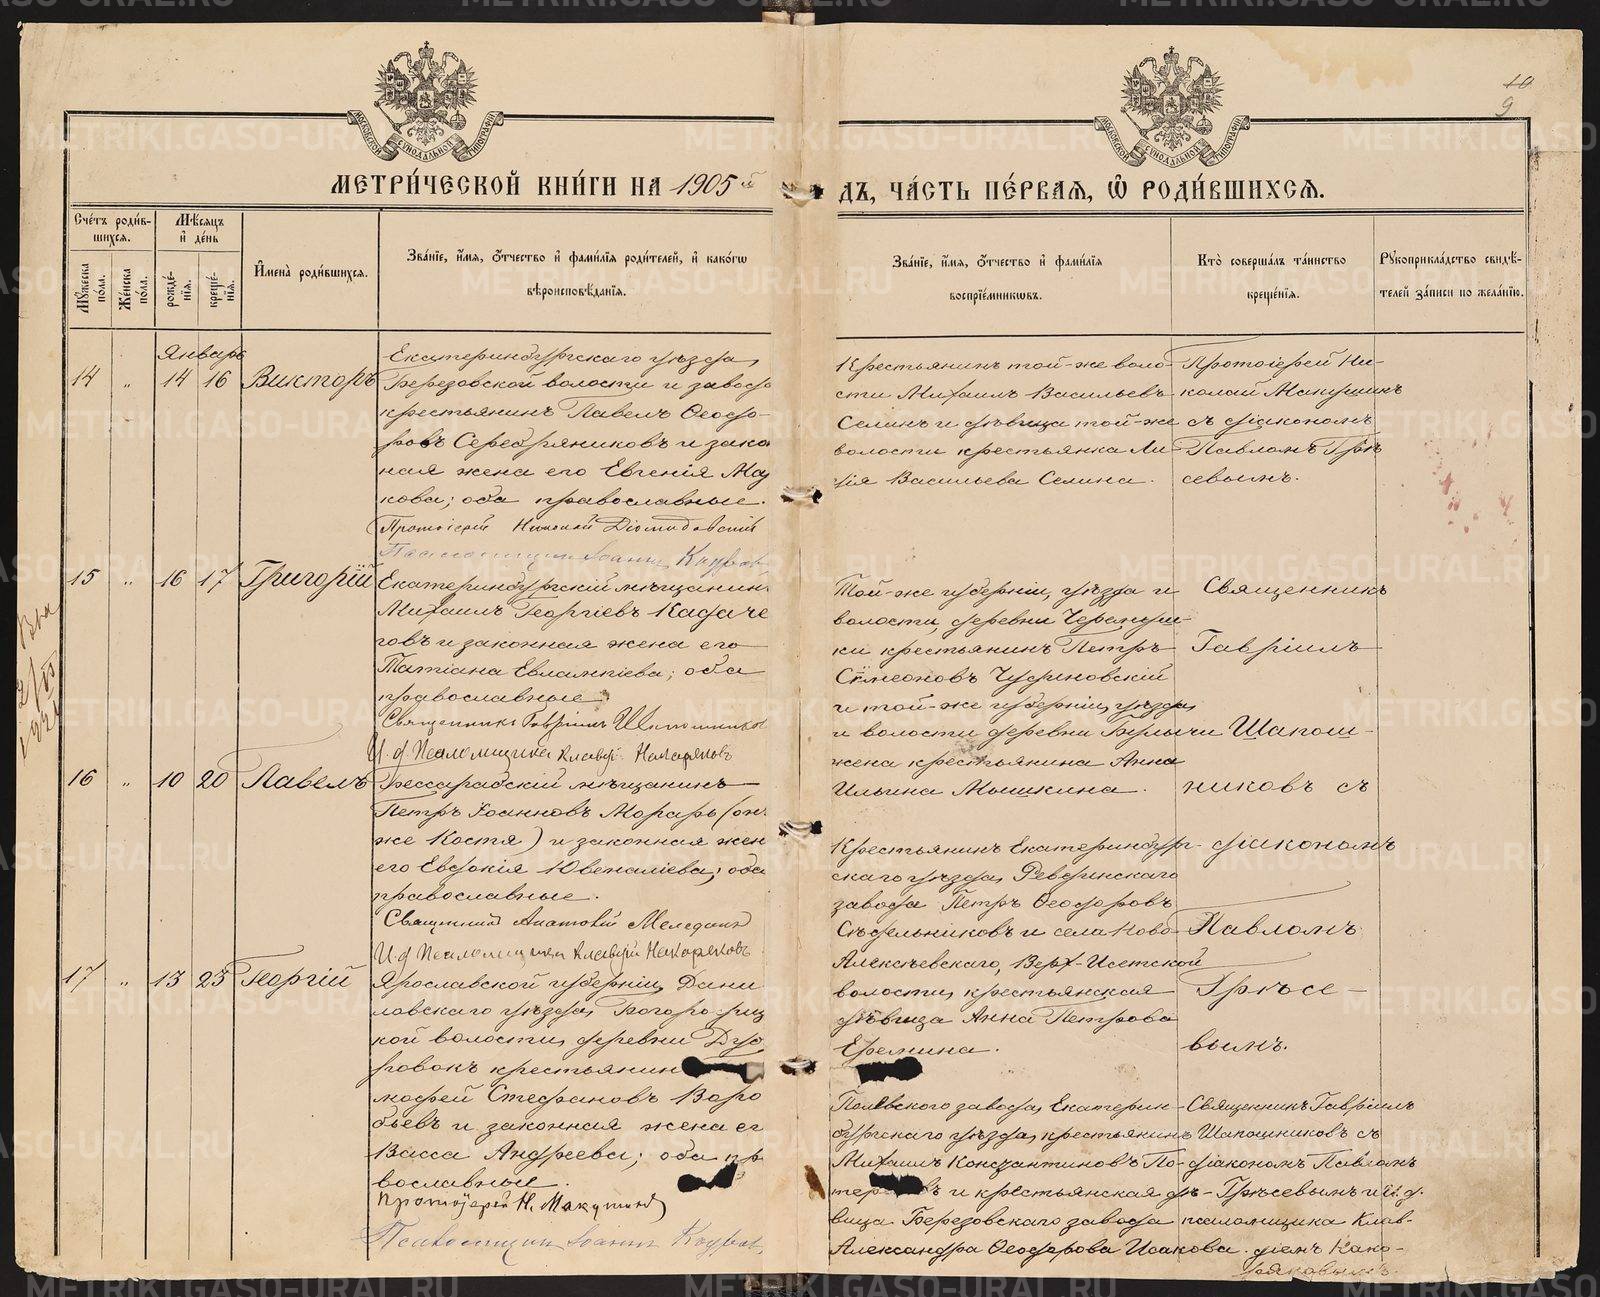 10
9
МОСКОВСКОЙ СУНОДАЛЬНОЙ ТИПОГРАФІИ
МОСКОВСКОЙ СУНОДАЛЬНОЙ ТИПОГРАФІИ
МЕТРИ́ЧЕСКОЙ КНИ́ГИ НА 1905й
ДЪ, ЧА́СТЬ ПЕ́РВАЯ, Ѽ РОДИ́ВШИХСЯ.
Сче́тъ роди́в-
шихся.
Мѣ́сяцъ
и҆ де́нь
Мꙋ́жеска по́ла.
Же́нска по́ла.
рожде́-
нія.
креще́-
нія.
И҆мена̀ роди́вшихся.
Зва́ніе, и҆́мя, ѻ҆́тчество и҆ фами́лія роди́телей, и҆ како́гѡ
вѣроисповѣ́данія.
Зва́ніе, и҆́мя, ѻ҆́тчество и҆ фами́лія
воспріе́мникѡвъ.
Кто̀ соверша́лъ та́инство
креще́нія.
Рꙋкоприкла́дство свидѣ́-
телей за́писи по жела́нію.
Январь
14 " 14 16 Викторъ
Екатеринбургскаго уѣзда,
Березовской волости и завода
крестьянинъ Павелъ Ѳеодо-
ровъ Серебряниковъ и зако
ная жена его Евгенія
кова; оба православные.
Протоіерей Николай Діомидовскій
Псаломщикъ Іоаннъ
Крестьянинъ той-же воло-
сти Михаилъ Васильевъ
Селинъ и дѣвица той-же
волости крестьянка Ли-
дія Васильева Селина.
Протоіерей Ни-
колай Макушинъ
съ діакономъ
Павломъ Грѣ
севымъ.
15 " 16 17 Григорій
Екатеринбургскій мѣщанинъ
Михаилъ Георгіевъ Кадаче
говъ и законная жена его
Татіана Евлампіева; оба
православные.
Священникъ Гавріилъ Шапошников
И.д. Псаломщика Клавдій Накаряковъ
Той-же губерніи, уѣзда и
волости, деревни Черемш-
ки крестьянинъ Петръ
Сѵмеоновъ Чудиновскій
и той-же губерніи, уѣзда,
и волости деревни
жена крестьянина Анна
Ильина Мышкина.
Священникъ
Гавріилъ
Шапош-
никовъ съ
діакономъ
Павломъ
Грѣсе-
вымъ.
16 " 10 20 Павелъ
Бессарабскій мѣщанинъ
Петръ Іоанновъ Мораръ (он
же Костя) и законная жен
его Евдокія Ювеналіева; оба
православные.
Священникъ Анатолій
И.д. Псаломщика Клавдій Накаряковъ
Крестьянинъ Екатеринбург-
скаго уѣзда, Ревдинскаго
завода Петръ Ѳеодоровъ
Сѣдельниковъ и села Ново-
Алексѣевскаго, Верх-Исетской
волости, крестьянская
дѣвица Анна Петрова
Еремина.
17 " 13 23 Георгій
Ярославской губерніи, Дани
ловскаго уѣзда, Богороднц
кой волости, деревни Дуб
ровокъ крестьянин
мофей Стефановъ Воро
бьевъ и законная жена ег
Васса Андреева; оба пр
вославные.
Протоіерей Н. Макушинъ
Псаломщикъ Іоаннъ
Полевскаго завода, Екатерин-
бургскаго уѣзда, крестьянинъ
Михаилъ Константиновъ По-
тер въ и крестьянская дѣ-
вица Березовскаго завода
Александра Ѳеодорова Исакова.
Священникъ Гавріилъ
Шапошниковъ съ
діакономъ Павломъ
Грѣсевымъ и и.д.
псаломщика Клав-
діемъ Како-
ряковымъ.
1921
METRIKI.GASO-URAL.RU